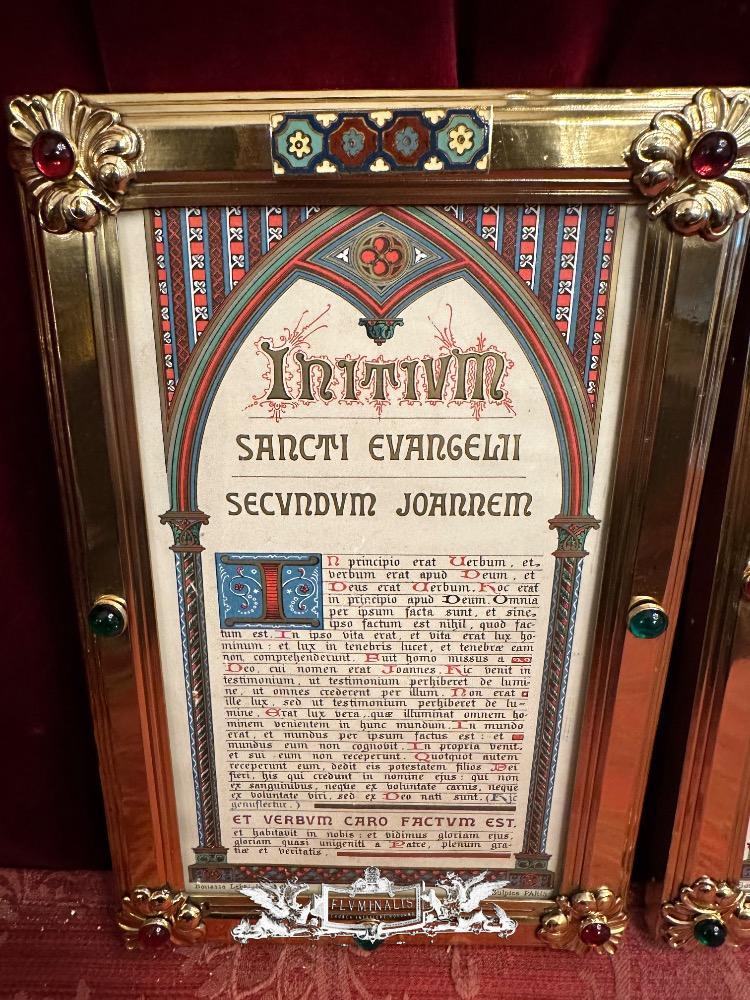 INITIVM
SANCTI EVANGELII
SECVNDVM JOANNEM
IN principio erat Verbum, et
verbum erat apud Deum, et
Deus erat Verbum. Hoc erat
in principio apud Deum. Omnia
per ipsum facta sunt, et sine
ipso factum est nihil, quod fac-
tum est. In ipso vita erat, et vita erat lux ho-
minum : et lux in tenebris lucet, et tenebræ eam
non comprehenderunt. Fuit homo missus a
Deo, cui nomen erat Joannes. Hic venit in
testimonium, ut testimonium perhiberet de lumi-
ne, ut omnes crederent per illum. Non erat
ille lux, sed ut testimonium perhiberet de lu-
mine. Erat lux vera, quæ illuminat omnem ho-
minem venientem in hunc mundum. In mundo
erat, et mundus per ipsum factus est : et
mundus eum non cognovit. In propria venit,
et sui eum non receperunt. Quotquot autem
receperunt eum, dedit eis potestatem filios Dei
fieri, his qui credunt in nomine ejus : qui non
ex sanguinibus, neque ex voluntate carnis, neque
ex voluntate viri, sed ex Deo nati sunt. (Hic
genuflectur.)
ET VERBVM CARO FACTVM EST.
et habitavit in nobis : et vidimus gloriam ejus,
gloriam quasi unigeniti a Patre, plenum gra-
tiæ et veritatis.
Bouasse Sulpice PARIS
FLVMINALIS